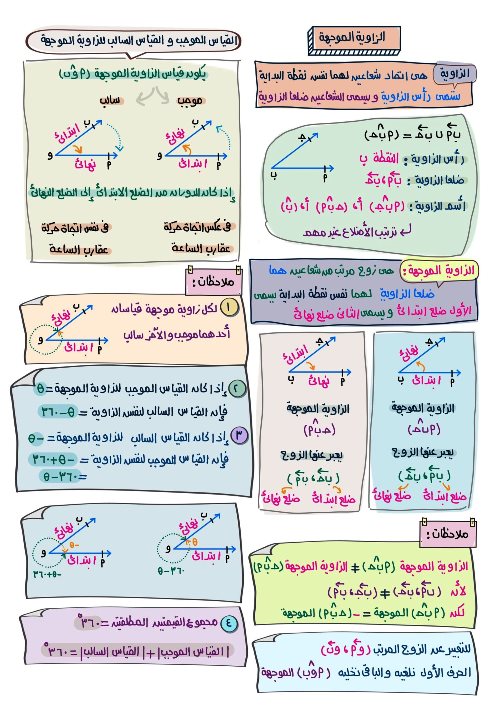 الزاوية الموجهة
الزاوية هى اتحاد شعاعين لهما نفس نقطة البداية
تسمى رأس الزاوية ويسمى الشعاعين ضلعا الزاوية
ب
جـ
P
رأس الزاوية : النقطة ب
ضلعا الزاوية :
اسم الزاوية :
ترتيب الأضلاع غير مهم
الزاوية الموجهة : هى زوج مرتب من شعاعين هما
ضلعا الزاوية لهما نفس نقطة البداية يسمى
الأول ضلع ابتدائى ويسمى الثانى ضلع نهائى
جـ
نهائى
ابتدائى
ب
P
الزاوية الموجهة
(Pبجـ)
يعبر عنها الزوج
(بP ، بجـ)
ضلع ابتدائى ضلع نهائى
جـ
ابتدائى
نهائى
ب
P
الزاوية الموجهة
(جـبP)
يعبر عنها الزوج
(بجـ ، بP)
ضلع ابتدائى ضلع نهائى
ملاحظات :
الزاوية الموجهة (Pبجـ) ≠ الزاوية الموجهة (جـبP)
لأن (بP ، بجـ) ≠ (بجـ ، بP)
لكن (Pبجـ) الموجهة = -(جـبP) الموجهة
للتعبير عن الزوج المرتب (وP ، وب)
الحرف الأول نلغيه والباقى نخليه (Pوب) الموجهة
القياس الموجب و القياس السالب للزاوية الموجهة
يكون قياس الزاوية الموجهة (Pوب)
موجب
سالب
ب
نهائى
ابتدائى
و
P
ب
ابتدائى
نهائى
و
P
إذا كان الدوران من الضلع الابتدائى إلى الضلع النهائى
فى عكس اتجاة حركة
عقارب الساعة
فى نفس اتجاة حركة
عقارب الساعة
ملاحظات :
١ لكل زاوية موجهة قياسان
أحدهما موجب والآخر سالب
ب
نهائى
ابتدائى
و
P
٢ إذا كان القياس الموجب للزاوية الموجهة = θ
فإن القياس السالب لنفس الزاوية = θ-٣٦٠
٣ إذا كان القياس السالب للزاوية الموجهة = -θ
فإن القياس الموجب لنفس الزاوية = -θ+٣٦٠
= ٣٦٠-θ
ب
نهائى
θ
ابتدائى
و
P
θ-٣٦٠
ب
نهائى
-θ
ابتدائى
و
P
-θ+٣٦٠
٤ مجموع القيمتين المطلقتين = ٣٦٠°
|القياس الموجب| + |القياس السالب| = ٣٦٠°